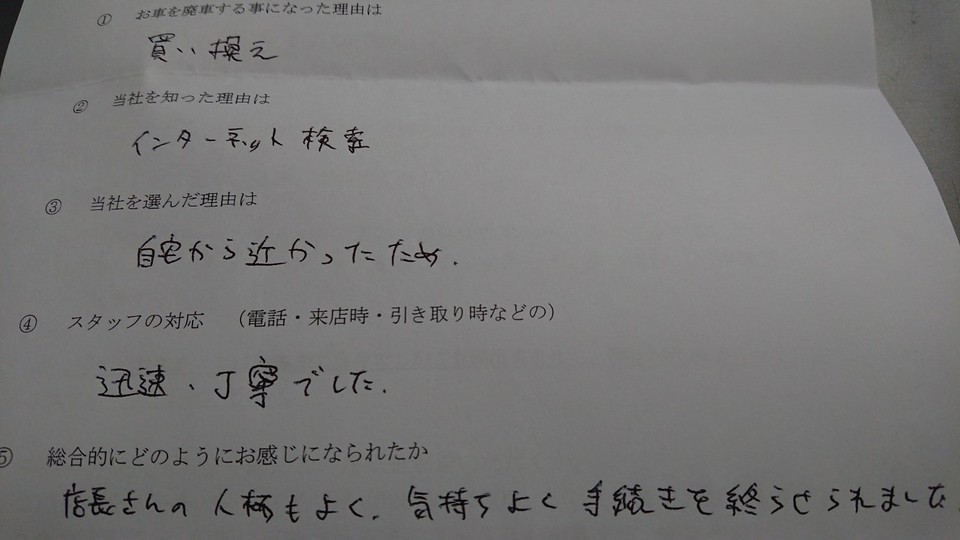 ① お車を廃車する事になった理由は
買い換え
② 当社を知った理由は
インターネット検索
③ 当社を選んだ理由は
自宅から近かったため.
④ スタッフの対応 （電話・来店時・引き取り時などの）
迅速、丁寧でした.
⑤ 総合的にどのようにお感じになられたか
店長さんの人柄もよく、気持ちよく手続きを終らせられました